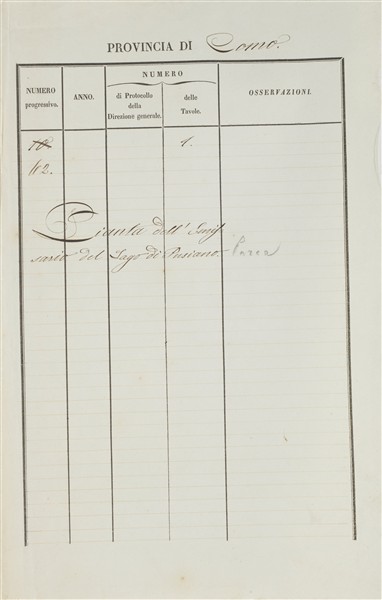 PROVINCIA DI Como.
NUMERO progressivo.
ANNO.
NUMERO
di Protocollo della Direzione generale.
delle Tavole.
OSSERVAZIONI.
1.
112.
Pianta dell' Emis
sario del Lago di Pusiano.